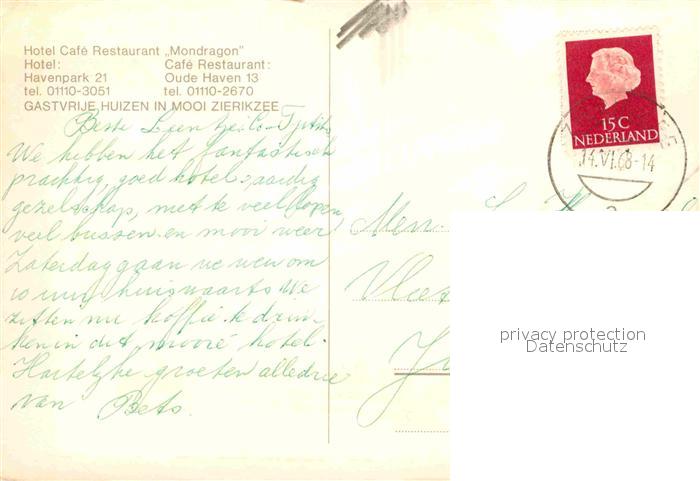 Hotel Café Restaurant „Mondragon"
Hotel: Café Restaurant:
Havenpark 21 Oude Haven 13
tel. 01110-3051 tel. 01110-2670
GASTVRIJE HUIZEN IN MOOI ZIERIKZEE
Beste
We hebben het fantastisch
prachtig, goed hotel, aardig
gezelschap, niet te veel lopen,
veel bussen en mooi weer
Zaterdag gaan we weer om
10 uur huiswaarts We
zitten nu koffie te drin
ken in dit mooie hotel.
Hartelijke groeten alledrie
van Bets.
15 C
NEDERLAND
14.VI.68-14
privacy protection
Datenschutz